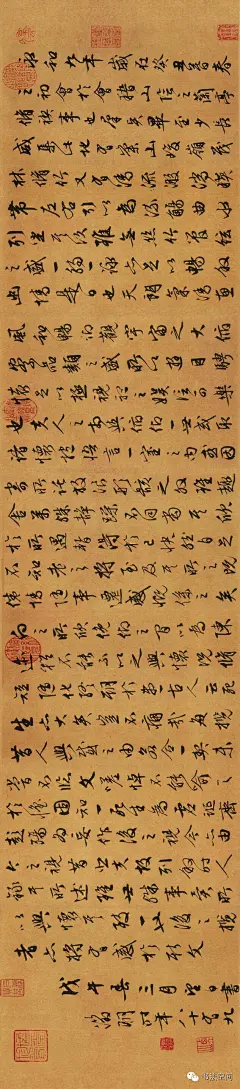 永和九年歲在癸丑暮春
之初會於會稽山陰之蘭亭
脩禊事也群賢畢至少長
咸集此地有崇山峻領茂
林脩竹又有清流激湍映
帶左右引以為流觴曲水
列坐其次雖無絲竹管弦
之盛一觴一詠亦足以暢敘
幽情是日也天朗氣清惠
風和暢仰觀宇宙之大俯
察品類之盛所以遊目騁
懷足以極視聽之娛信可樂
也夫人之相與俯仰一世或取
諸懷抱悟言一室之內或因
寄所託放浪形骸之外雖趣
舍萬殊靜躁不同當其欣
於所遇暫得於己快然自足
不知老之將至及其所之既
倦情隨事遷感慨係之矣
向之所欣俛仰之間以為陳
迹猶不能不以之興懷況脩
短隨化終期於盡古人云死
生亦大矣豈不痛哉每攬
昔人興感之由若合一契未
嘗不臨文嗟悼不能喻之
於懷固知一死生為虛誕齊
彭殤為妄作後之視今亦由
今之視昔悲夫故列敘時人
錄其所述雖世殊事異所
以興懷其致一也後之攬
者亦將有感於斯文
戊午春三月望日書
徵明時年八十有九